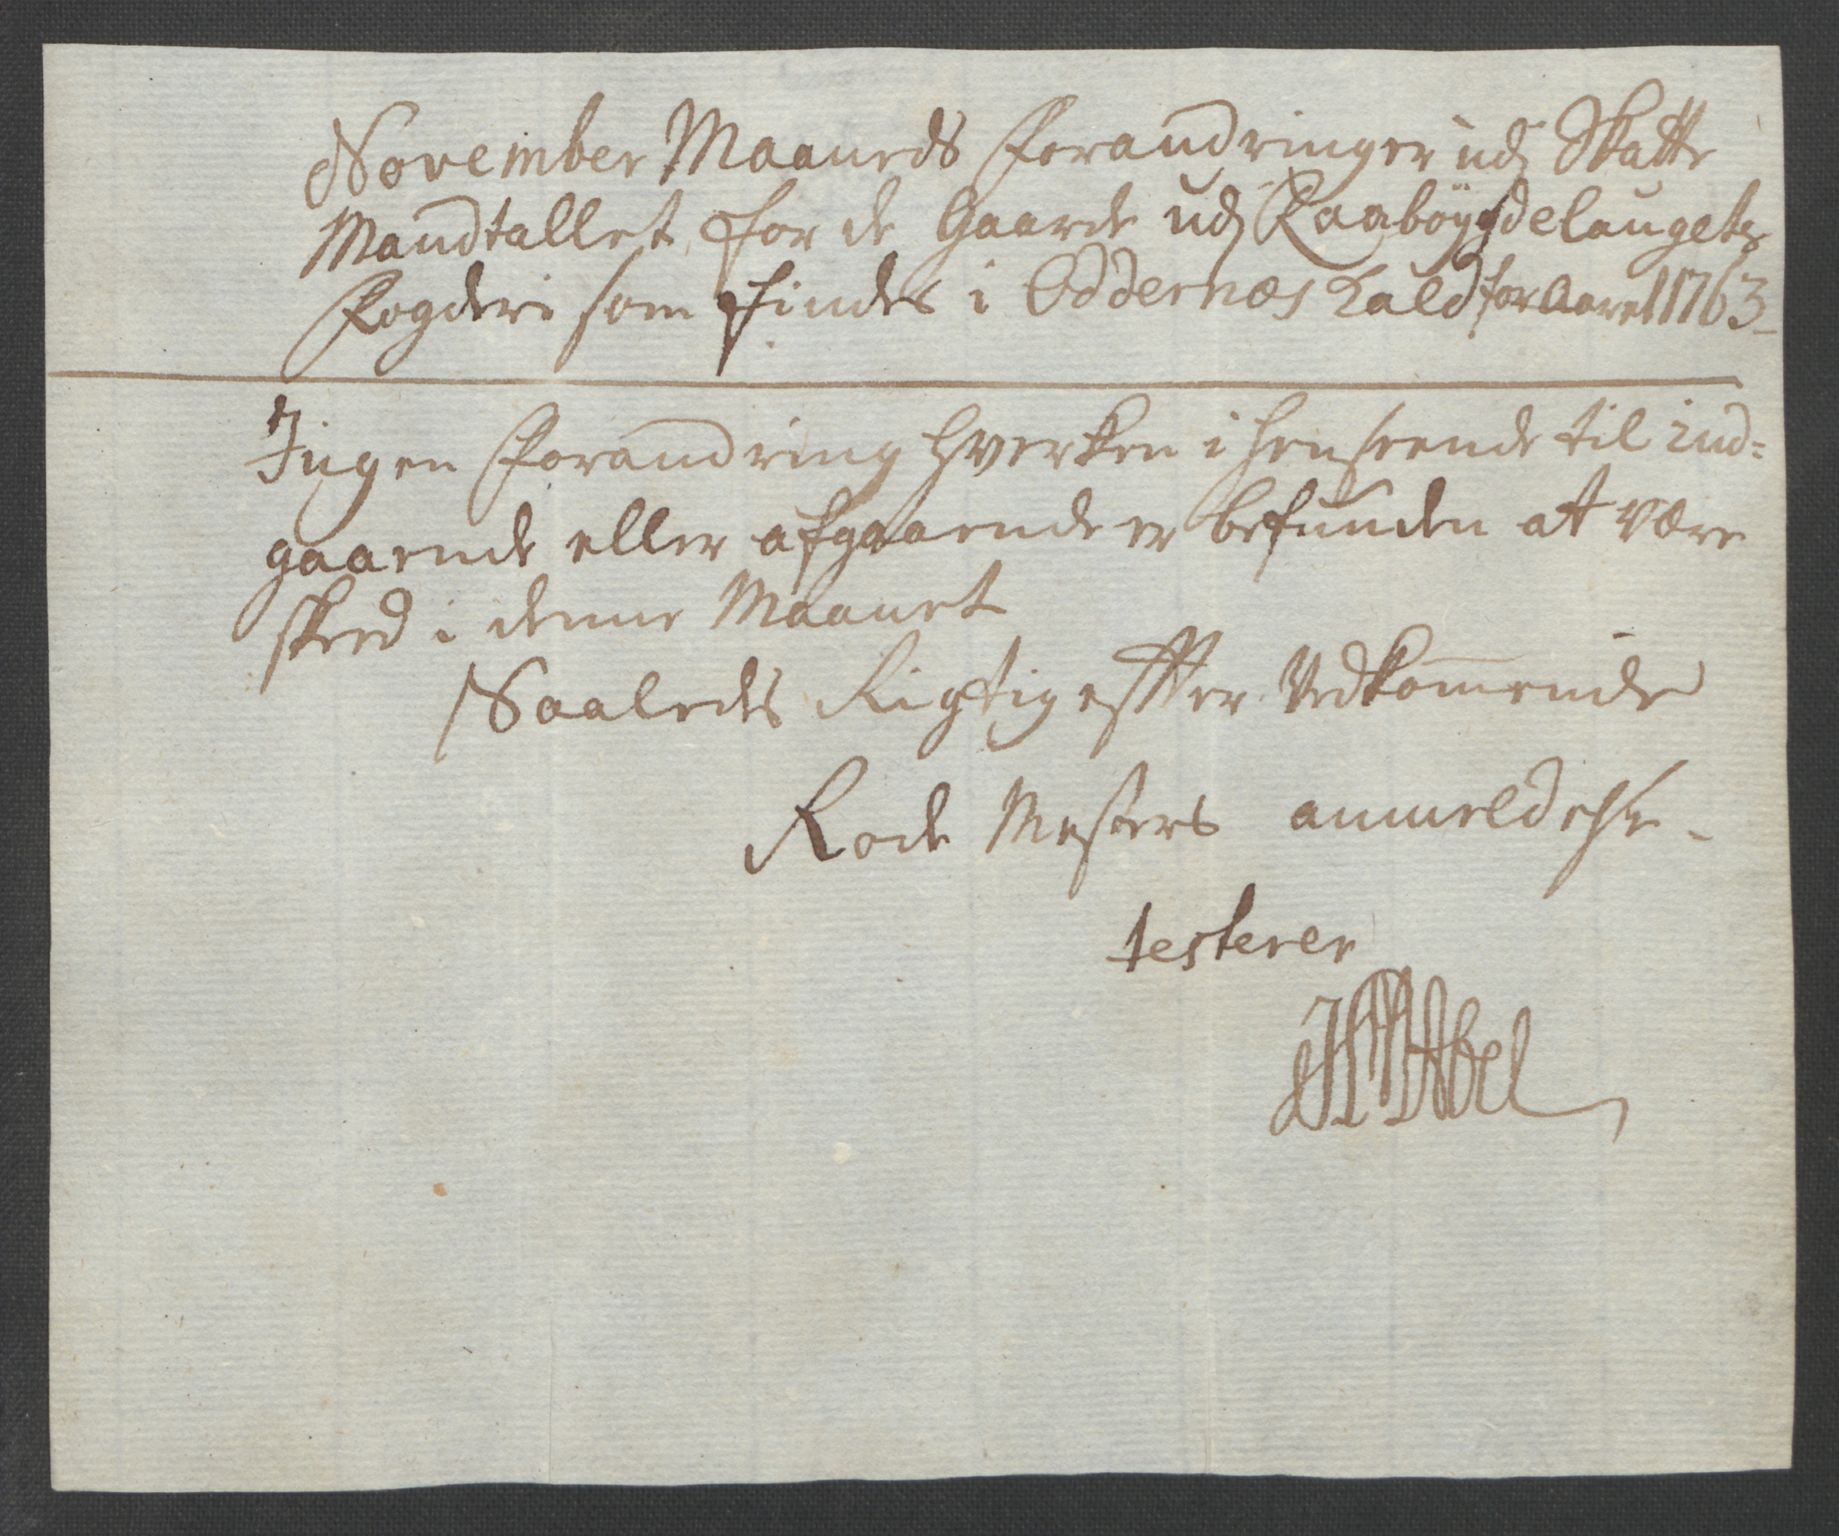 November Maaneds Forandringer ud j Skatte
Mandtallet for de Gaarde ud j Raabøygdelaugets
Fogderi som findes i Oddernæs Kald for Aaret 1763
Ingen Forandring hverken i henseende til ind=
gaaende eller afgaaende er befunden at være
skeed i denne Maanet
Saaledes Rigtig effter Vedkommende
Rode Mesters anmeldelse
testerer
Abel